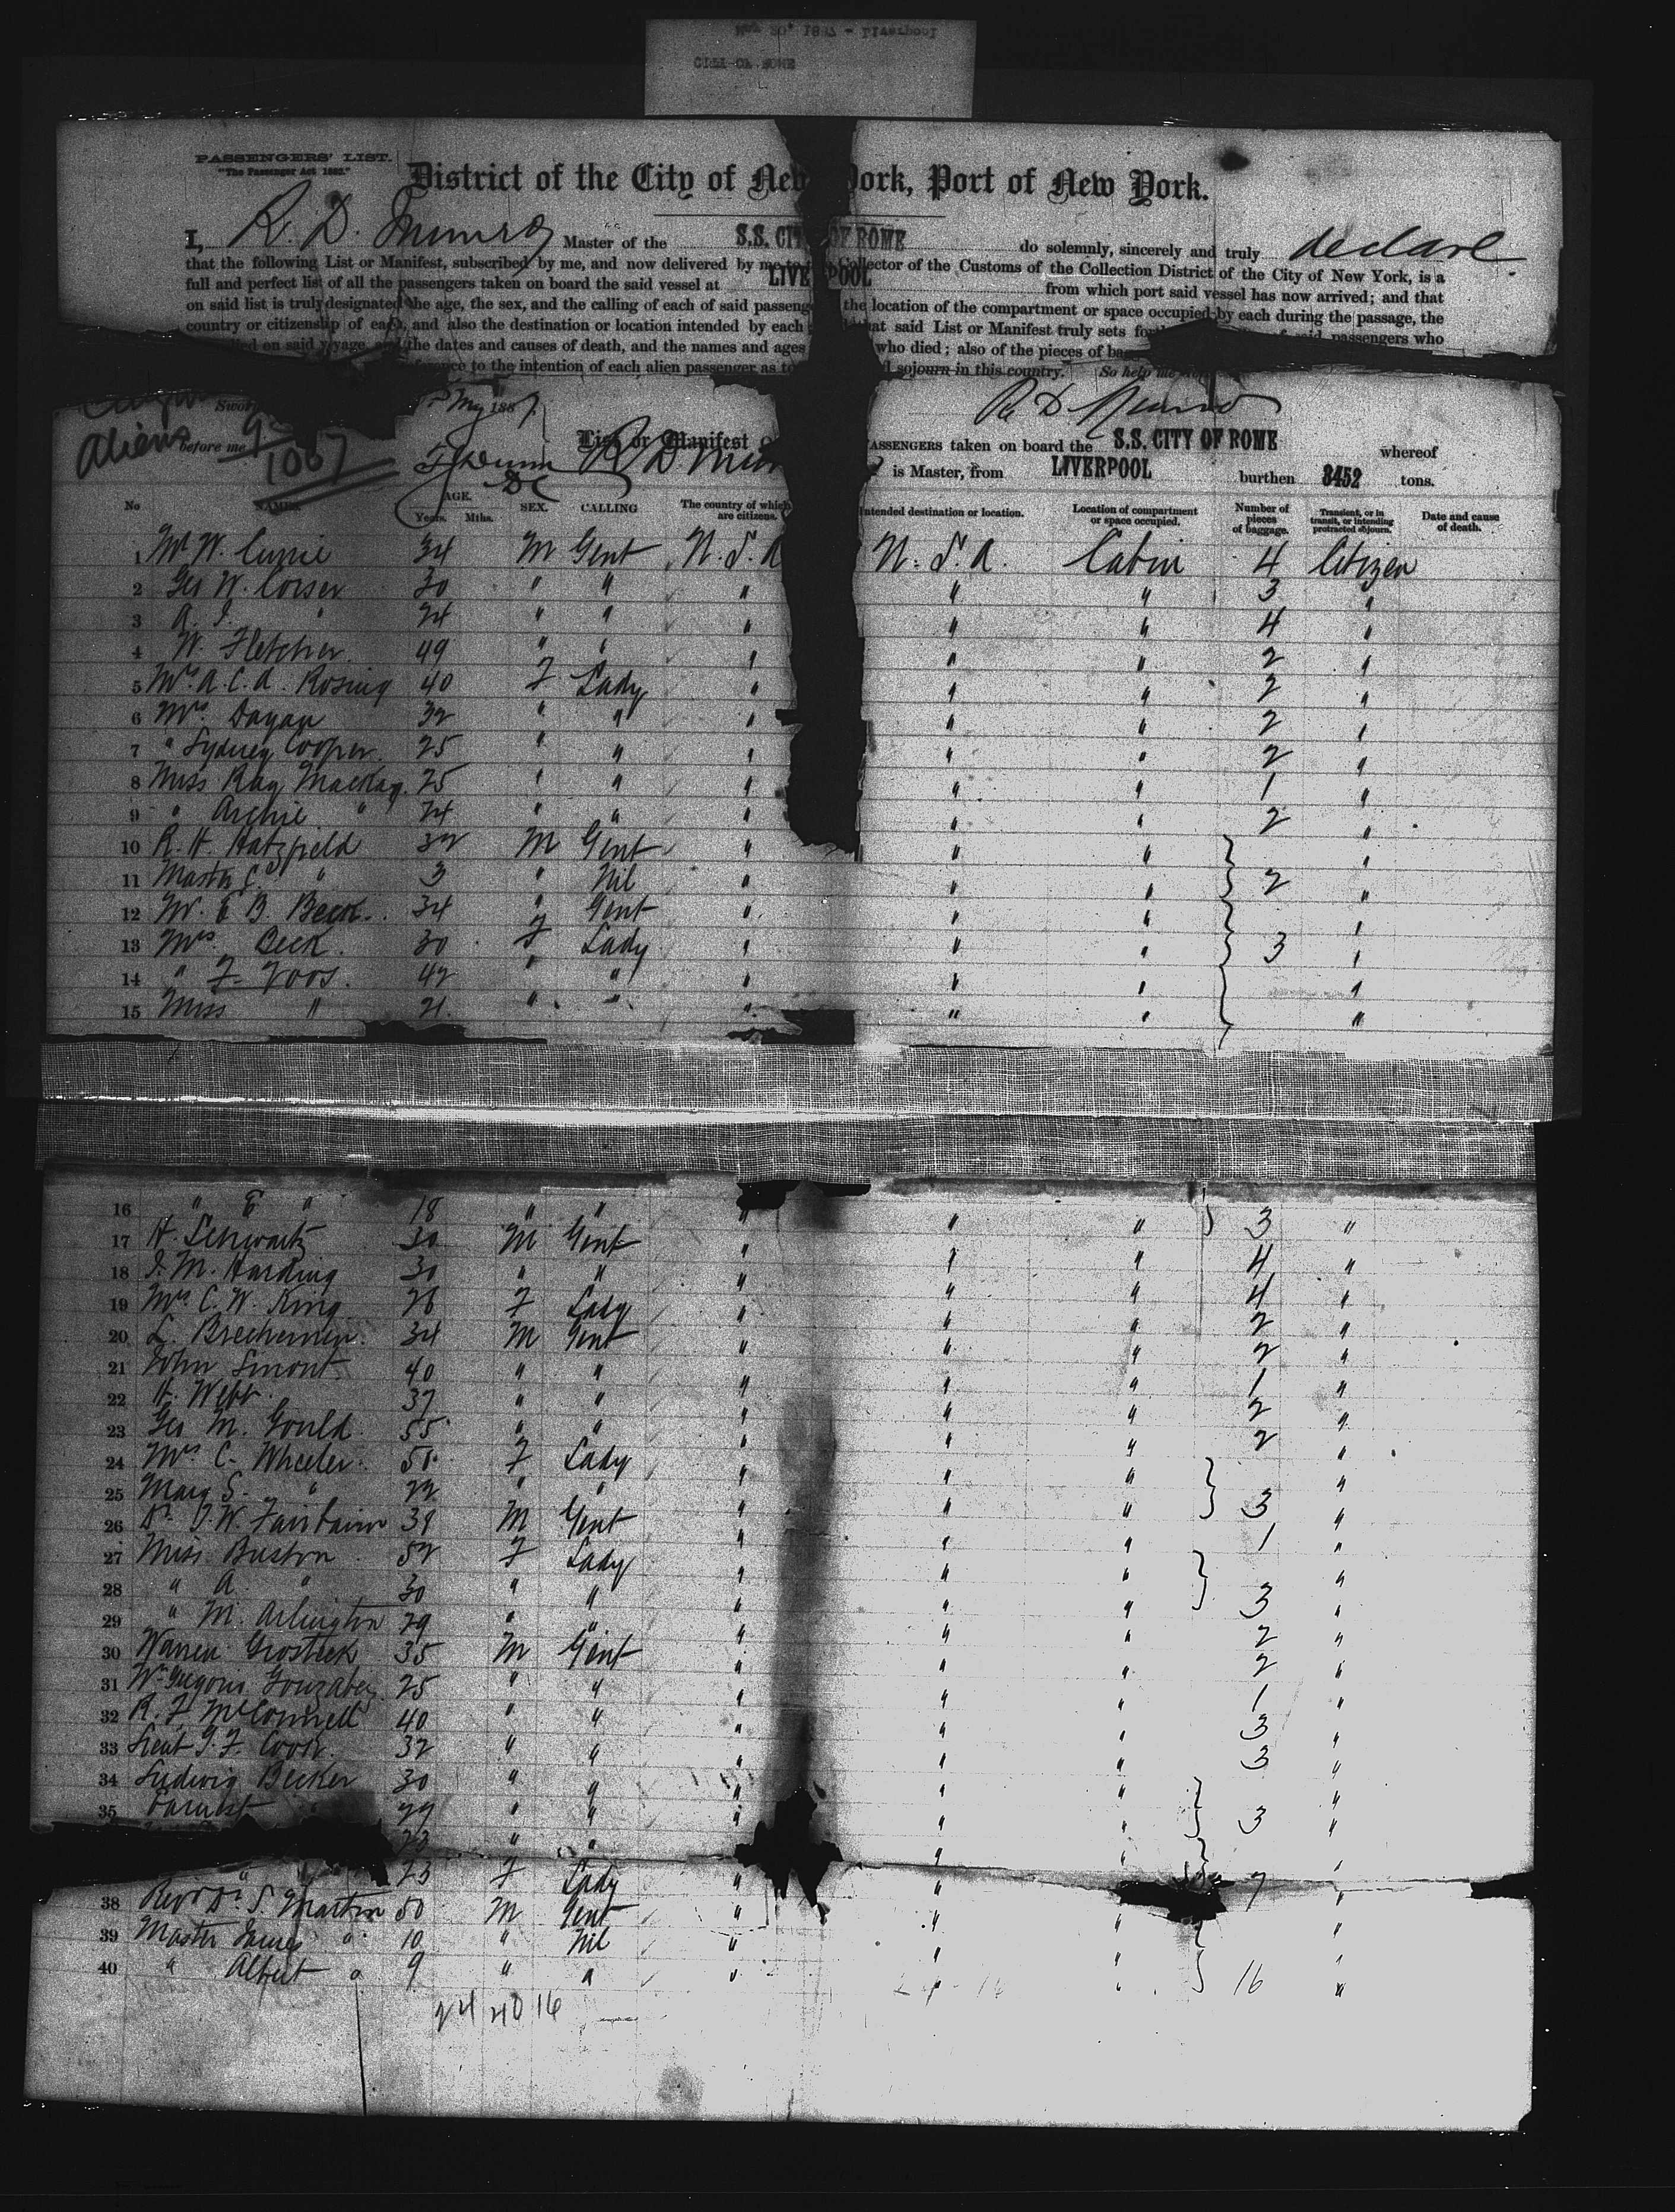 CITY OF ROME
PASSENGERS' LIST.
"The Passenger Act 1882."
District of the City of New York, Port of New York.
I, R. D. Munro Master of the S.S. CITY OF ROME do solemnly, sincerely and truly declare
that the following List or Manifest, subscribed by me, and now delivered by me to Collector of the Customs of the Collection District of the City of New York, is a
full and perfect list of all the passengers taken on board the said vessel at LIVERPOOL from which port said vessel has now arrived; and that
on said list is truly designated the age, the sex, and the calling of each of said passeng the location of the compartment or space occupied by each during the passage, the
country or citizenship of each, and also the destination or location intended by each that said List or Manifest truly sets passengers who
on said voyage, the dates and causes of death, and the names and ages who died; also of the pieces of
to the intention of each alien passenger as to sojourn in this country. So help me
May 188
R D Munro
Aliens before me
1007
List or Manifest PASSENGERS taken on board the S.S. CITY OF ROME whereof
R D Mun is Master, from LIVERPOOL burthen 3452 tons.
No NAMES. AGE. Years. Mths. SEX. CALLING The country of which are citizens. Intended destination or location. Location of compartment or space occupied. Number of pieces of baggage. Transient, or in transit, or intending protracted sojourn. Date and cause of death.
1 Mr W. Currie 34 M Gent U.S.A U.S.A. Cabin 4 Citizen
2 Geo W. Corser 30 " " " " " 3 "
3 A. I. " 24 " " " " " 4 "
4 W. Fletcher 49 " " " " " 2 "
5 Mrs A. C. A. Rosing 40 F Lady " " " 2 "
6 Mrs Dayan 32 " " " " " 2 "
7 " Sydney Cooper 25 " " " " " 2 "
8 Miss Ray Mackay 25 " " " " " 1 "
9 " Archie " 24 " " " " 2 "
10 R. H. Hatzfield 32 M Gent " " "
11 Master S. " 3 " Nil " " " 2 "
12 Mr. E B. Beck 34 " Gent " " " "
13 Mrs Beck 30 F Lady " " " 3 "
14 " F Voos 42 " " " " " "
15 Miss " 21 " " " " " "
16 " E " 18 " " " " " 3 "
17 H. Schwartz 30 M Gent " " " 4 "
18 I. M. Harding 30 " " " " " 4 "
19 Mrs C. W. King 26 F Lady " " " 2 "
20 L. Brechemin 34 M Gent " " " 2 "
21 John Smont 40 " " " " " 1 "
22 H. Webb 37 " " " " " 2 "
23 Geo M. Gould 55 " " " " " 2 "
24 Mrs C. Wheeler 50 F Lady " " " "
25 Mary S. " 22 " " " " " 3 "
26 Dr. J. W. Fairbairn 39 M Gent " " " 1 "
27 Miss Buston 52 F Lady " " " "
28 " A. " 30 " " " " " 3 "
29 " M. Arlington 29 " " " " " 2 "
30 Warren Grosteck 35 M Gent " " " 2 "
31 25 " " " " " 1 "
32 R. F. McConnell 40 " " " " " 3 "
33 Lieut G. F. Cook 32 " " " " " 3 "
34 Ludwig Becker 30 " " " " " "
35 Earnest " 29 " " " " " 3 "
" " "
23 F Lady " " 7
38 Revd Dr. S. Martin 50 M Gent " " " "
39 Master James " 10 " Nil " " " "
40 " Albert " 9 " " " " " 16 "
24 40 16